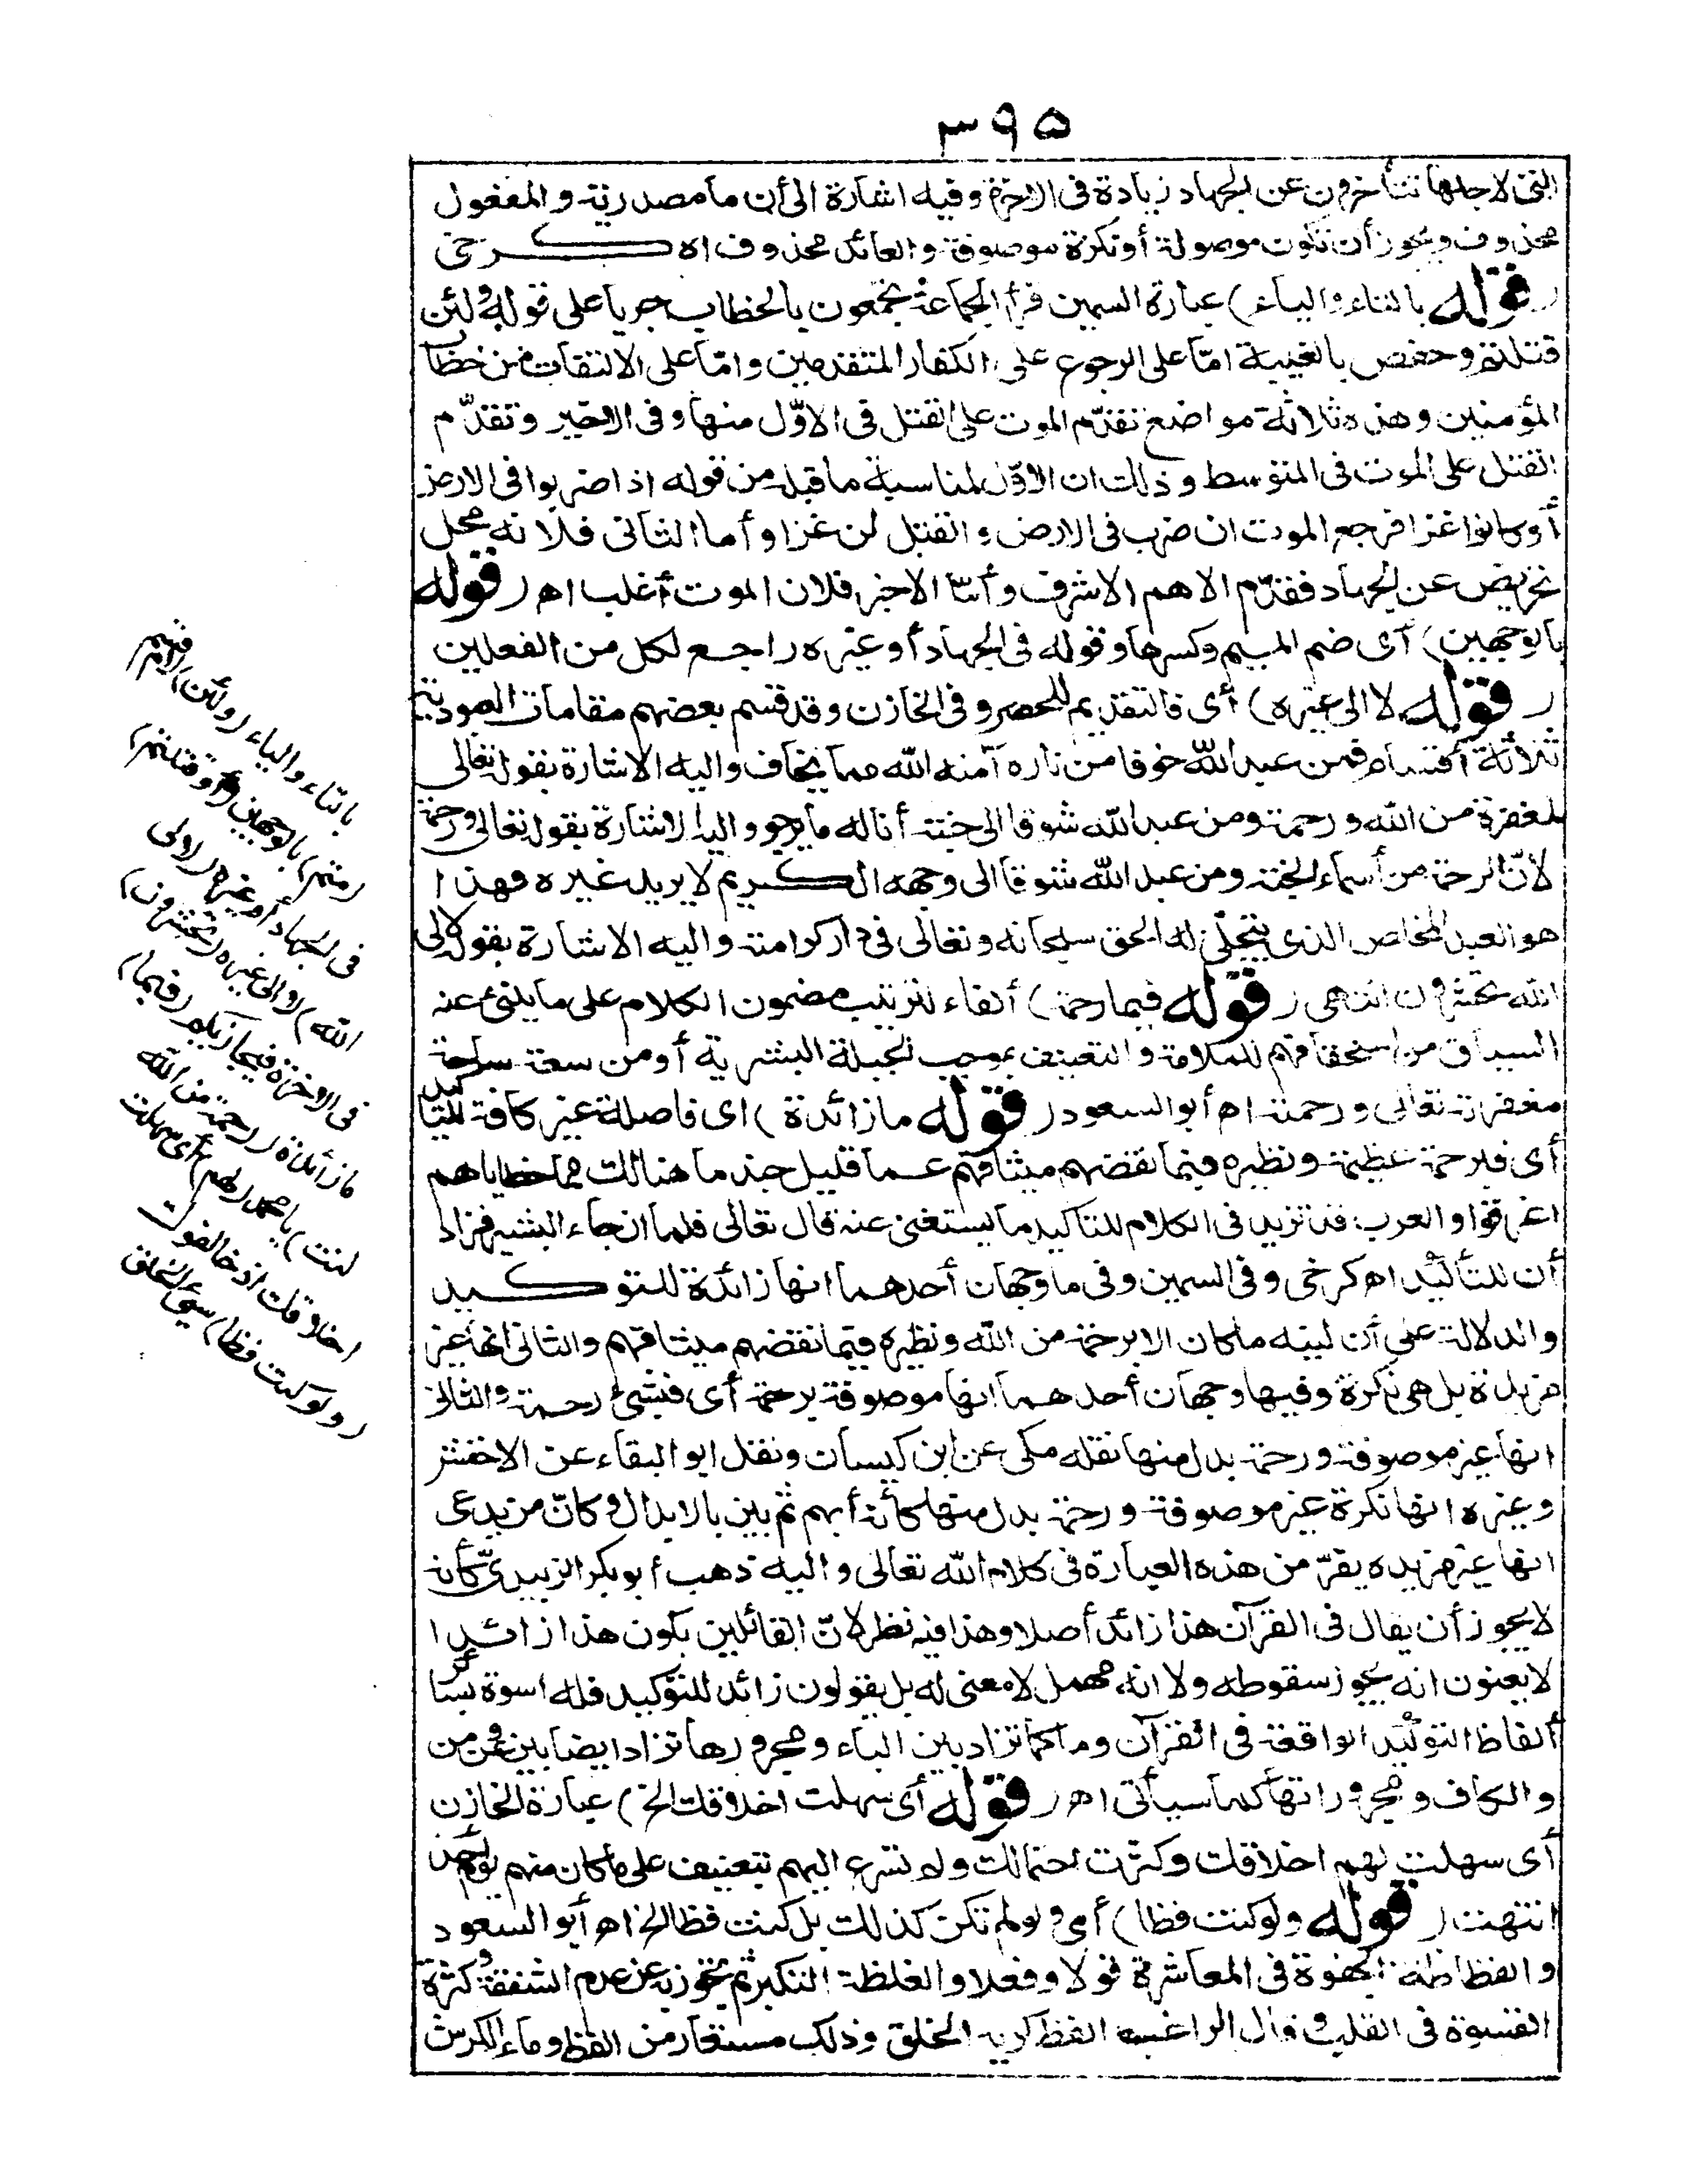 ٣٩٥
التى لاجلها تتأخرون عن الجهاد زيادة فى الاخرة وفيه اشارة الى أن ما مصدرية والمفعول
محذوف ويجوز أن تكون موصولة أو نكرة موصوفة والعائد محذوف اه كرخى
(قوله بالتاء والياء) عبارة السمين قرأ الجماعة تجمعون بالخطاب جريا على قوله ولئن
قتلتم وحفص بالغيبة امّا على الرجوع على الكفار المتقدمين وامّا على الالتفات من خطاب
المؤمنين وهذه ثلاثة مواضع تقدّم الموت على القتل فى الاوّل منها وفى الاخير وتقدّم
القتل على الموت فى المتوسط وذلك ان الاوّل لمناسبة ما قبله من قوله اذا ضربوا فى الارض
أو كانوا غزا فرجع الموت لمن ضرب فى الارض والقتل لمن غزا وأما الثانى فلانه محل
تحريض عن الجهاد فقدّم الاهم الاشرف وأمّا الاخير فلان الموت أغلب اه (قوله
بالوجهين) أى ضم الميم وكسرها وقوله فى الجهاد أو غيره راجع لكل من الفعلين
(قوله لا الى غيره) أى فالتقديم للحصر وفى الخازن وقد قسم بعضهم مقامات العبودية
ثلاثة أقسام فمن عبد الله خوفا من ناره آمنه الله مما يخاف واليه الاشارة بقوله تعالى
لمغفرة من الله ورحمة ومن عبد الله شوقا الى جنته أناله ما يرجو واليه الاشارة بقوله تعالى ورحمة
لانّ الرحمة من أسماء الجنة ومن عبد الله شوقا الى وجهه الكريم لا يريد غيره فهذا
هو العبد المخلص الذى يتجلّى له الحق سبحانه وتعالى فى دار كرامته واليه الاشارة بقوله لالى
الله تحشرون انتهى (قوله فبما رحمة) ألفاء لترتيب مضمون الكلام على ما ينبئ عنه
السياق من استحقاقهم للملامة والتعنيف بموجب الجبلة البشرية أو من سعة ساحة
مغفرته تعالى ورحمته اه أبو السعود (قوله ما زائدة) اى فاصلة غير كافة للتأكيد
أى فبرحمة عظيمة ونظيره فبما نقضهم ميثاقهم عما قليل جند ما هنالك مما خطاياهم
اغرقوا والعرب قد تزيد فى الكلام للتأكيد ما يستغنى عنه قال تعالى فلما ان جاء البشير فزاد
أن للتأكيد اه كرخى وفى السمين وفى ما وجهان أحدهما انها زائدة للتوكيد
والدلالة على أن لينه ما كان الا برحمة من الله ونظيره فبما نقضهم ميثاقهم والثانى انها غير
مزيدة بل هى نكرة وفيها وجهان أحدهما انها موصوفة برحمة أى فبشئ رحمة والثانى
انها غير موصوفة ورحمة بدل منها نقله مكى عن ابن كيسان ونقل ابو البقاء عن الاخفش
وغيره انها نكرة غير موصوفة ورحمة بدل منها كأنه أبهم ثم بين بالابدال وكانّ من يدعى
انها غير مزيده يفرّ من هذه العبارة فى كلام الله تعالى واليه ذهب أبو بكر الزبيدىّ كأنه
لا يجوز أن يقال فى القرآن هذا زائد أصلا وهذا فيه نظر لانّ القائلين بكون هذا زائدا
لا يعنون انه يجوز سقوطه ولا انه مهمل لا معنى له بل يقولون زائد للتوكيد فله اسوة بسائر
ألفاظ التوكيد الواقعة فى القرآن وما كما تزاد بين الباء ومجرورها تزاد ايضا بين عن ومن
والكاف ومجروراتها كما سيأتى اه (قوله أى سهلت اخلاقك الخ) عبارة الخازن
أى سهلت لهم اخلاقك وكثرت احتمالك ولم تسرع اليهم بتعنيف على ما كان منهم يوم أحد
انتهت (قوله ولو كنت فظا) أى ولو لم تكن كذلك بل كنت فظا الخ اه أبو السعود
والفظاظة الجفوة فى المعاشرة قولا وفعلا والغلظة التكبر ثم تجوز به عن عدم الشفقة وكثرة
القسوة فى القلب وقال الراغب الفظ كريه الخلق وذلك مستعار من الفظ وماء الكرش
بالتاء والياء (ولئن) لام قسم
(متم) بالوجهين (أو قتلتم)
فى الجهاد أو غيره (لالى
الله) لا الى غيره (تحشرون)
فى الاخرة فيجازيكم (فبما)
ما زائدة (رحمة من الله
لنت) يا محمد (لهم) أى سهلت
اخلاقك اذ خالفوك
(ولو كنت فظا) سيئ الخلق